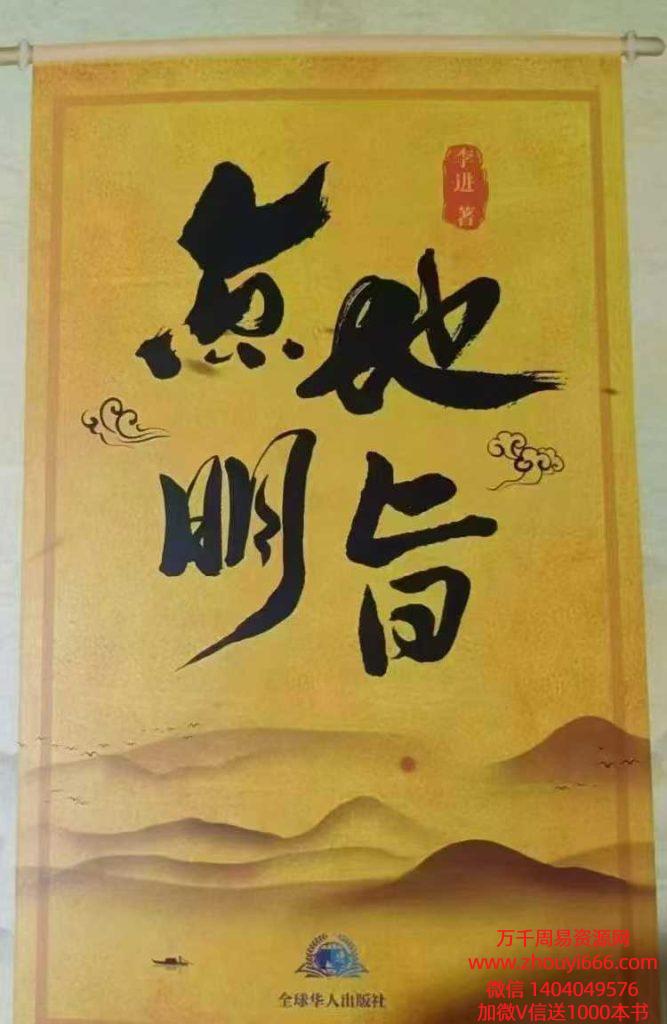 李进 著
点地
明旨
全球华人出版社
万千周易资源网
www.zhouyi666.com
微信 1404049576
加微V信送1000本书